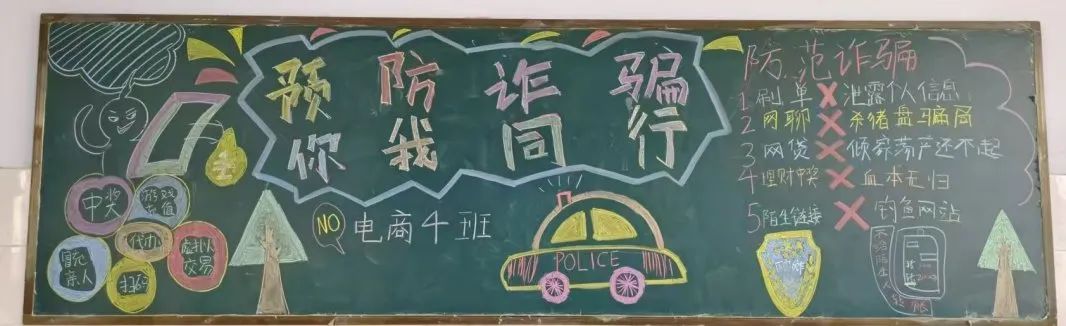 预防诈骗
你我同行
NO
电商4班
POLICE
中奖
游戏
充值
代办
虚拟
交易
冒充
亲人
扫码
防范诈骗
1刷单✗泄露个人信息
2网聊✗杀猪盘骗局
3网贷✗倾家荡产还不起
4理财中奖✗血本无归
5陌生链接✗钓鱼网站